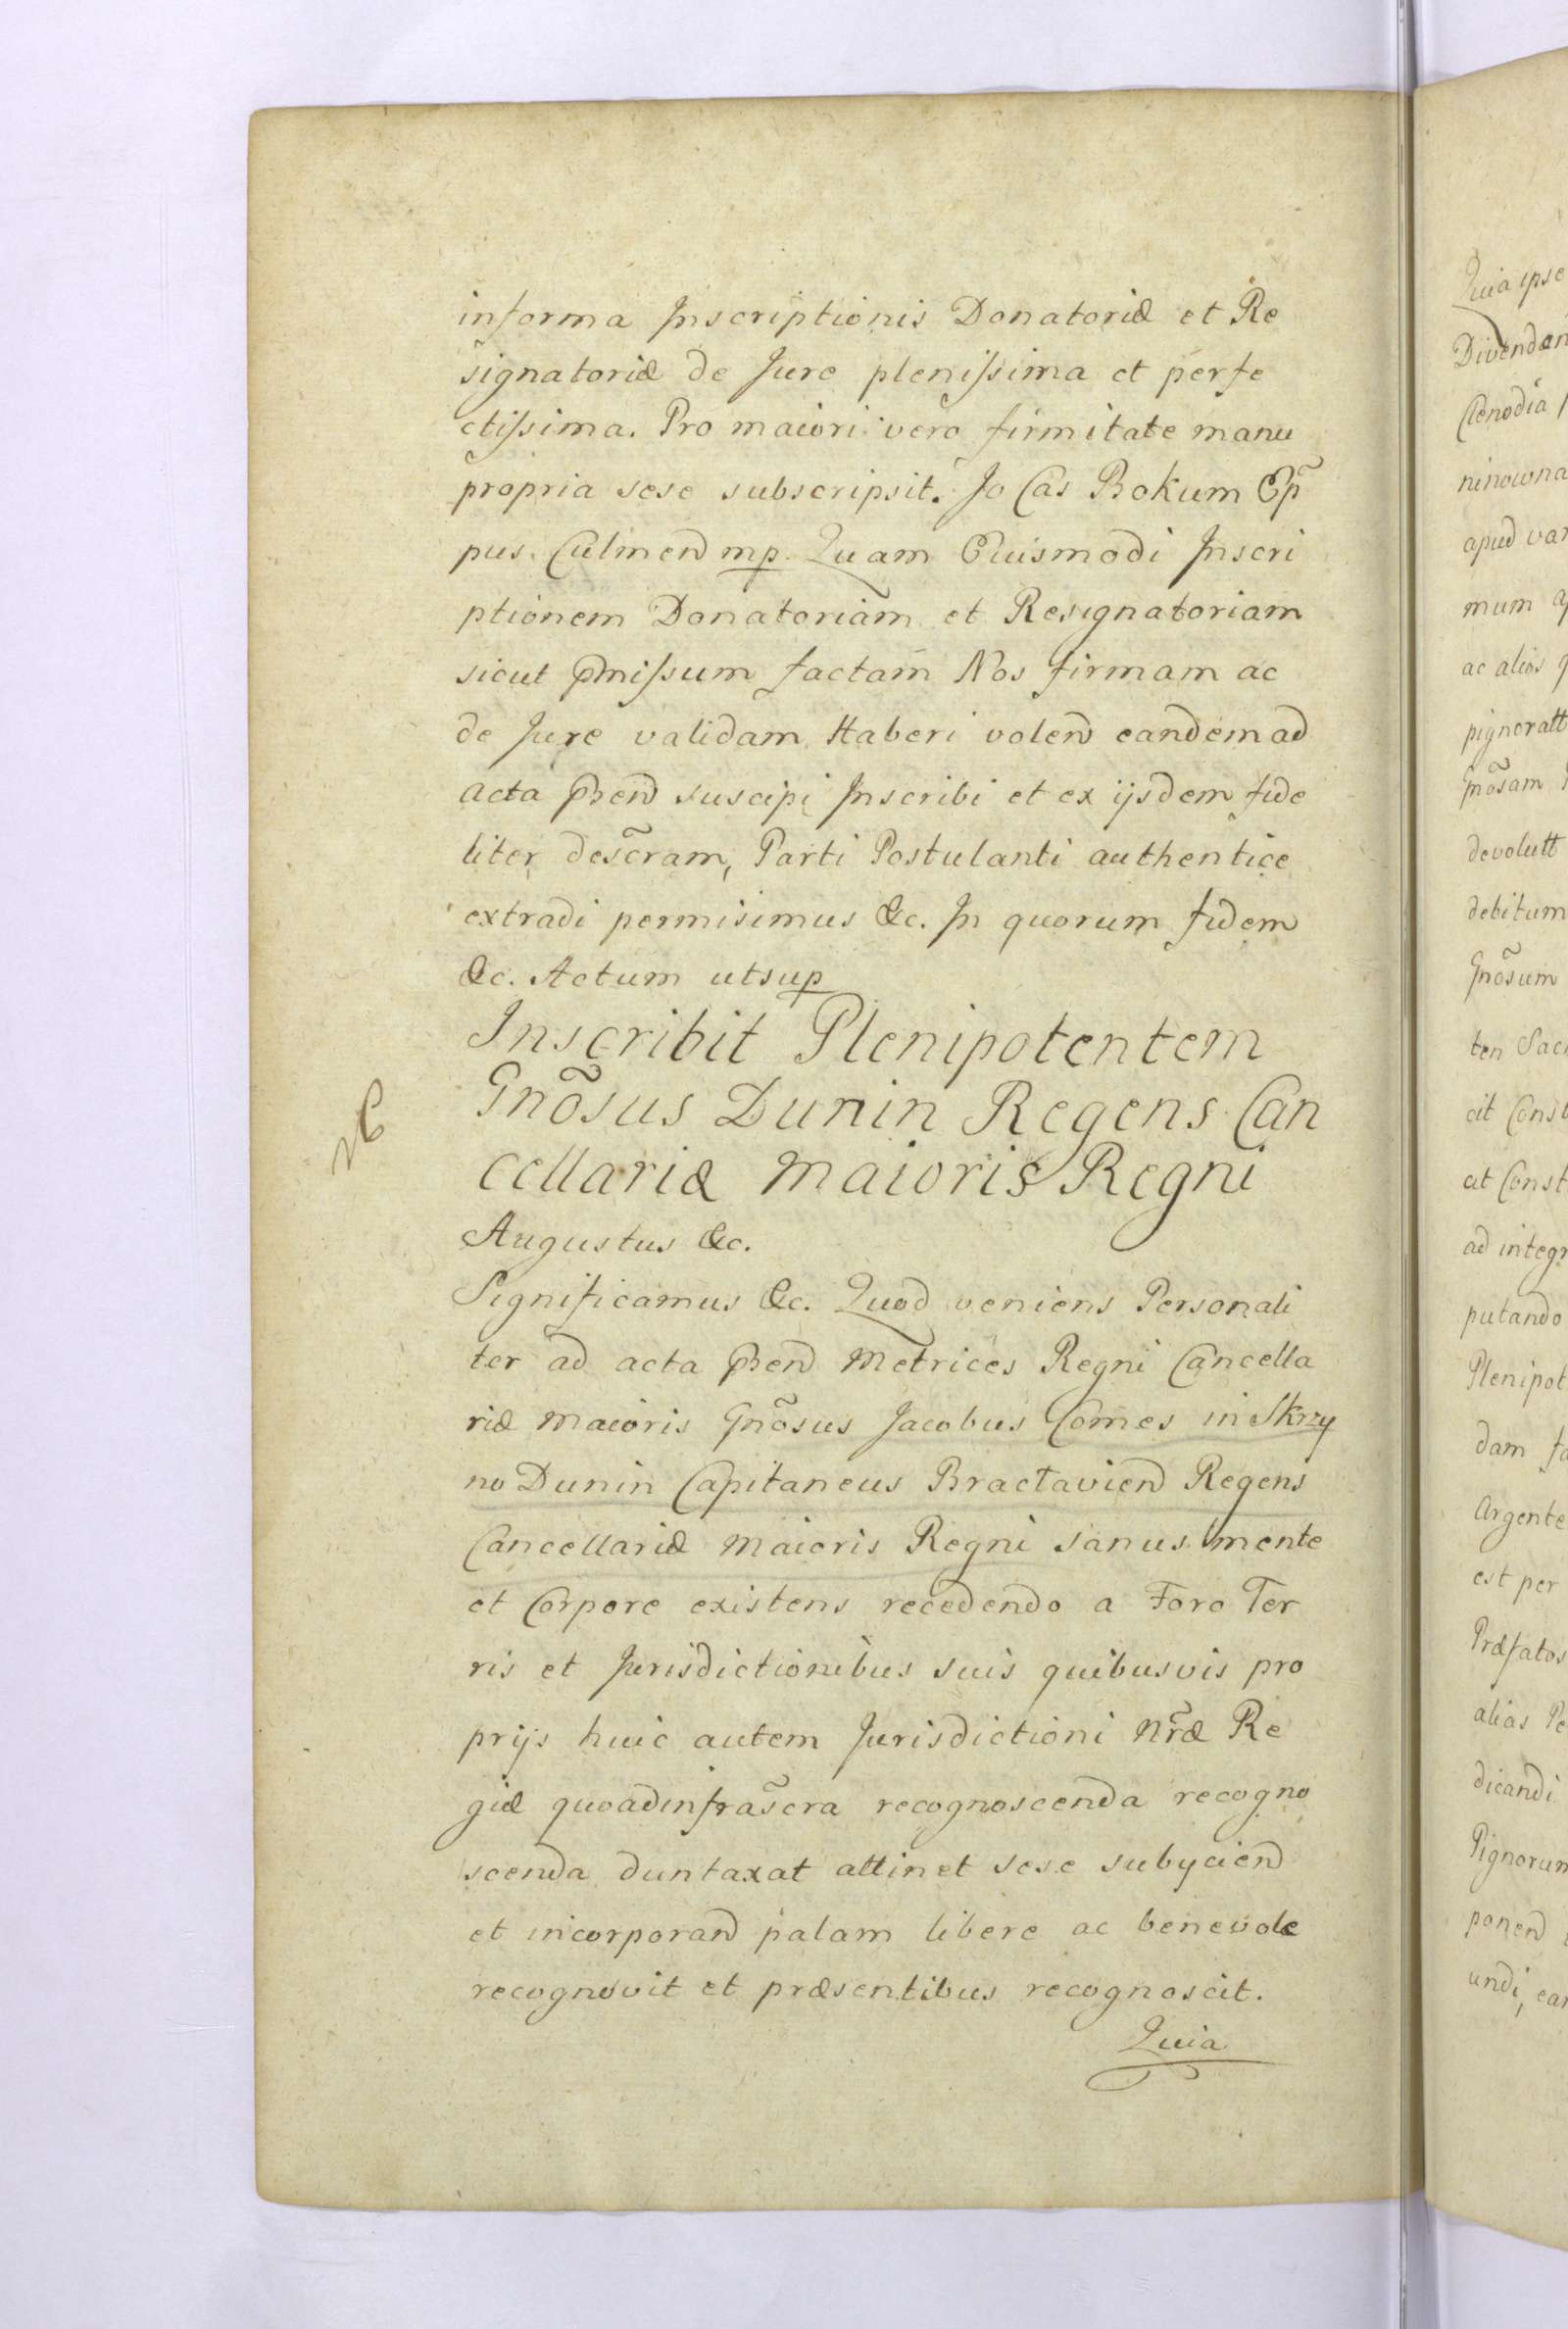 informa Inscriptionis Donatoriæ et Re
signatoriæ de Jure plenissima et perfe
ctissima. Pro maiori vero firmitate manu
propria sese subscripsit. Jo Cas Bokum Epῖ
pus. Culmen̄ mp. Quam Eiusmodi Inscri
ptionem Donatoriam et Resignatoriam
sicut pmissum factam Nos firmam ac
de Jure validam Haberi volen̄ eandem ad
acta pn̄sen̄ suscipi Inscribi et ex ijsdem fide
liter des̃cram, Parti Postulanti authentice
extradi permisimus &c. In quorum fidem
&c. Actum utsup
Inscribit Plenipotentem
Gnõsus Dunin Regens Can
cellariæ Maioris Regni
Augustus &c.
Significamus &c. Quod veniens Personali
ter ad acta pn̄sen̄ Metrices Regni Cancella
riæ Maioris Gnõsus Jacobus Comes in Skrzy
no Dunin Capitaneus Bractavien̄ Regens
Cancellariæ Maioris Regni sanus mente
et Corpore existens recedendo a Foro Ter
ris et Jurisdictionibus suis quibusvis pro
prijs huic autem Jurisdictioni Nr̃æ Re
giæ quoadinfras̃cra recognoscenda recogno
scenda duntaxat attinet sese subycien̄
et incorporan̄ palam libere ac benevole
recognovit et præsentibus recognoscit.
Quia
Quia ipse
mum
ac alios
devolutt
debitum
Gnõsum
putando
est per
dicandi